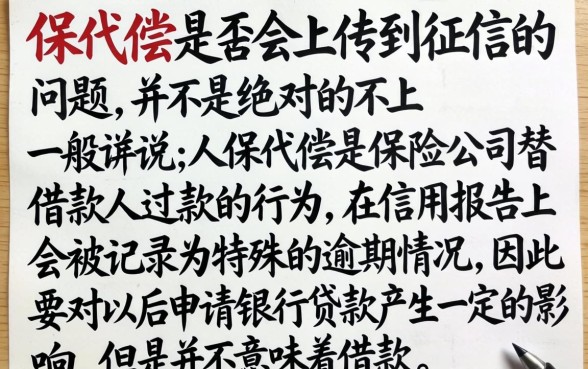 保代偿是否会上传到征信的
问题，并不是绝对的不上
一般详说；人保代偿是保险公司替
借款人过款的行为，在信用报告上
会被记录为特殊的逾期情况，因此
要对以后申请银行贷款产生一定的影
响，但是并不意味着借款。